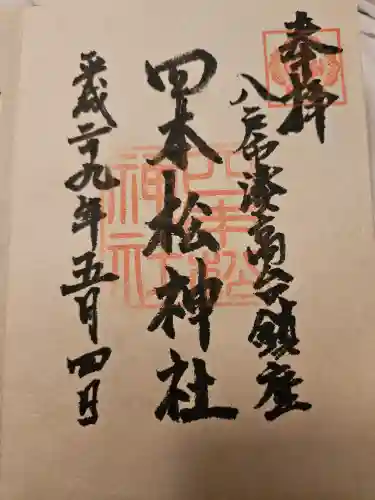 奉拝
八戸市湊高台鎮座
四本松神社
平成二十九年五月四日
四本松
神社